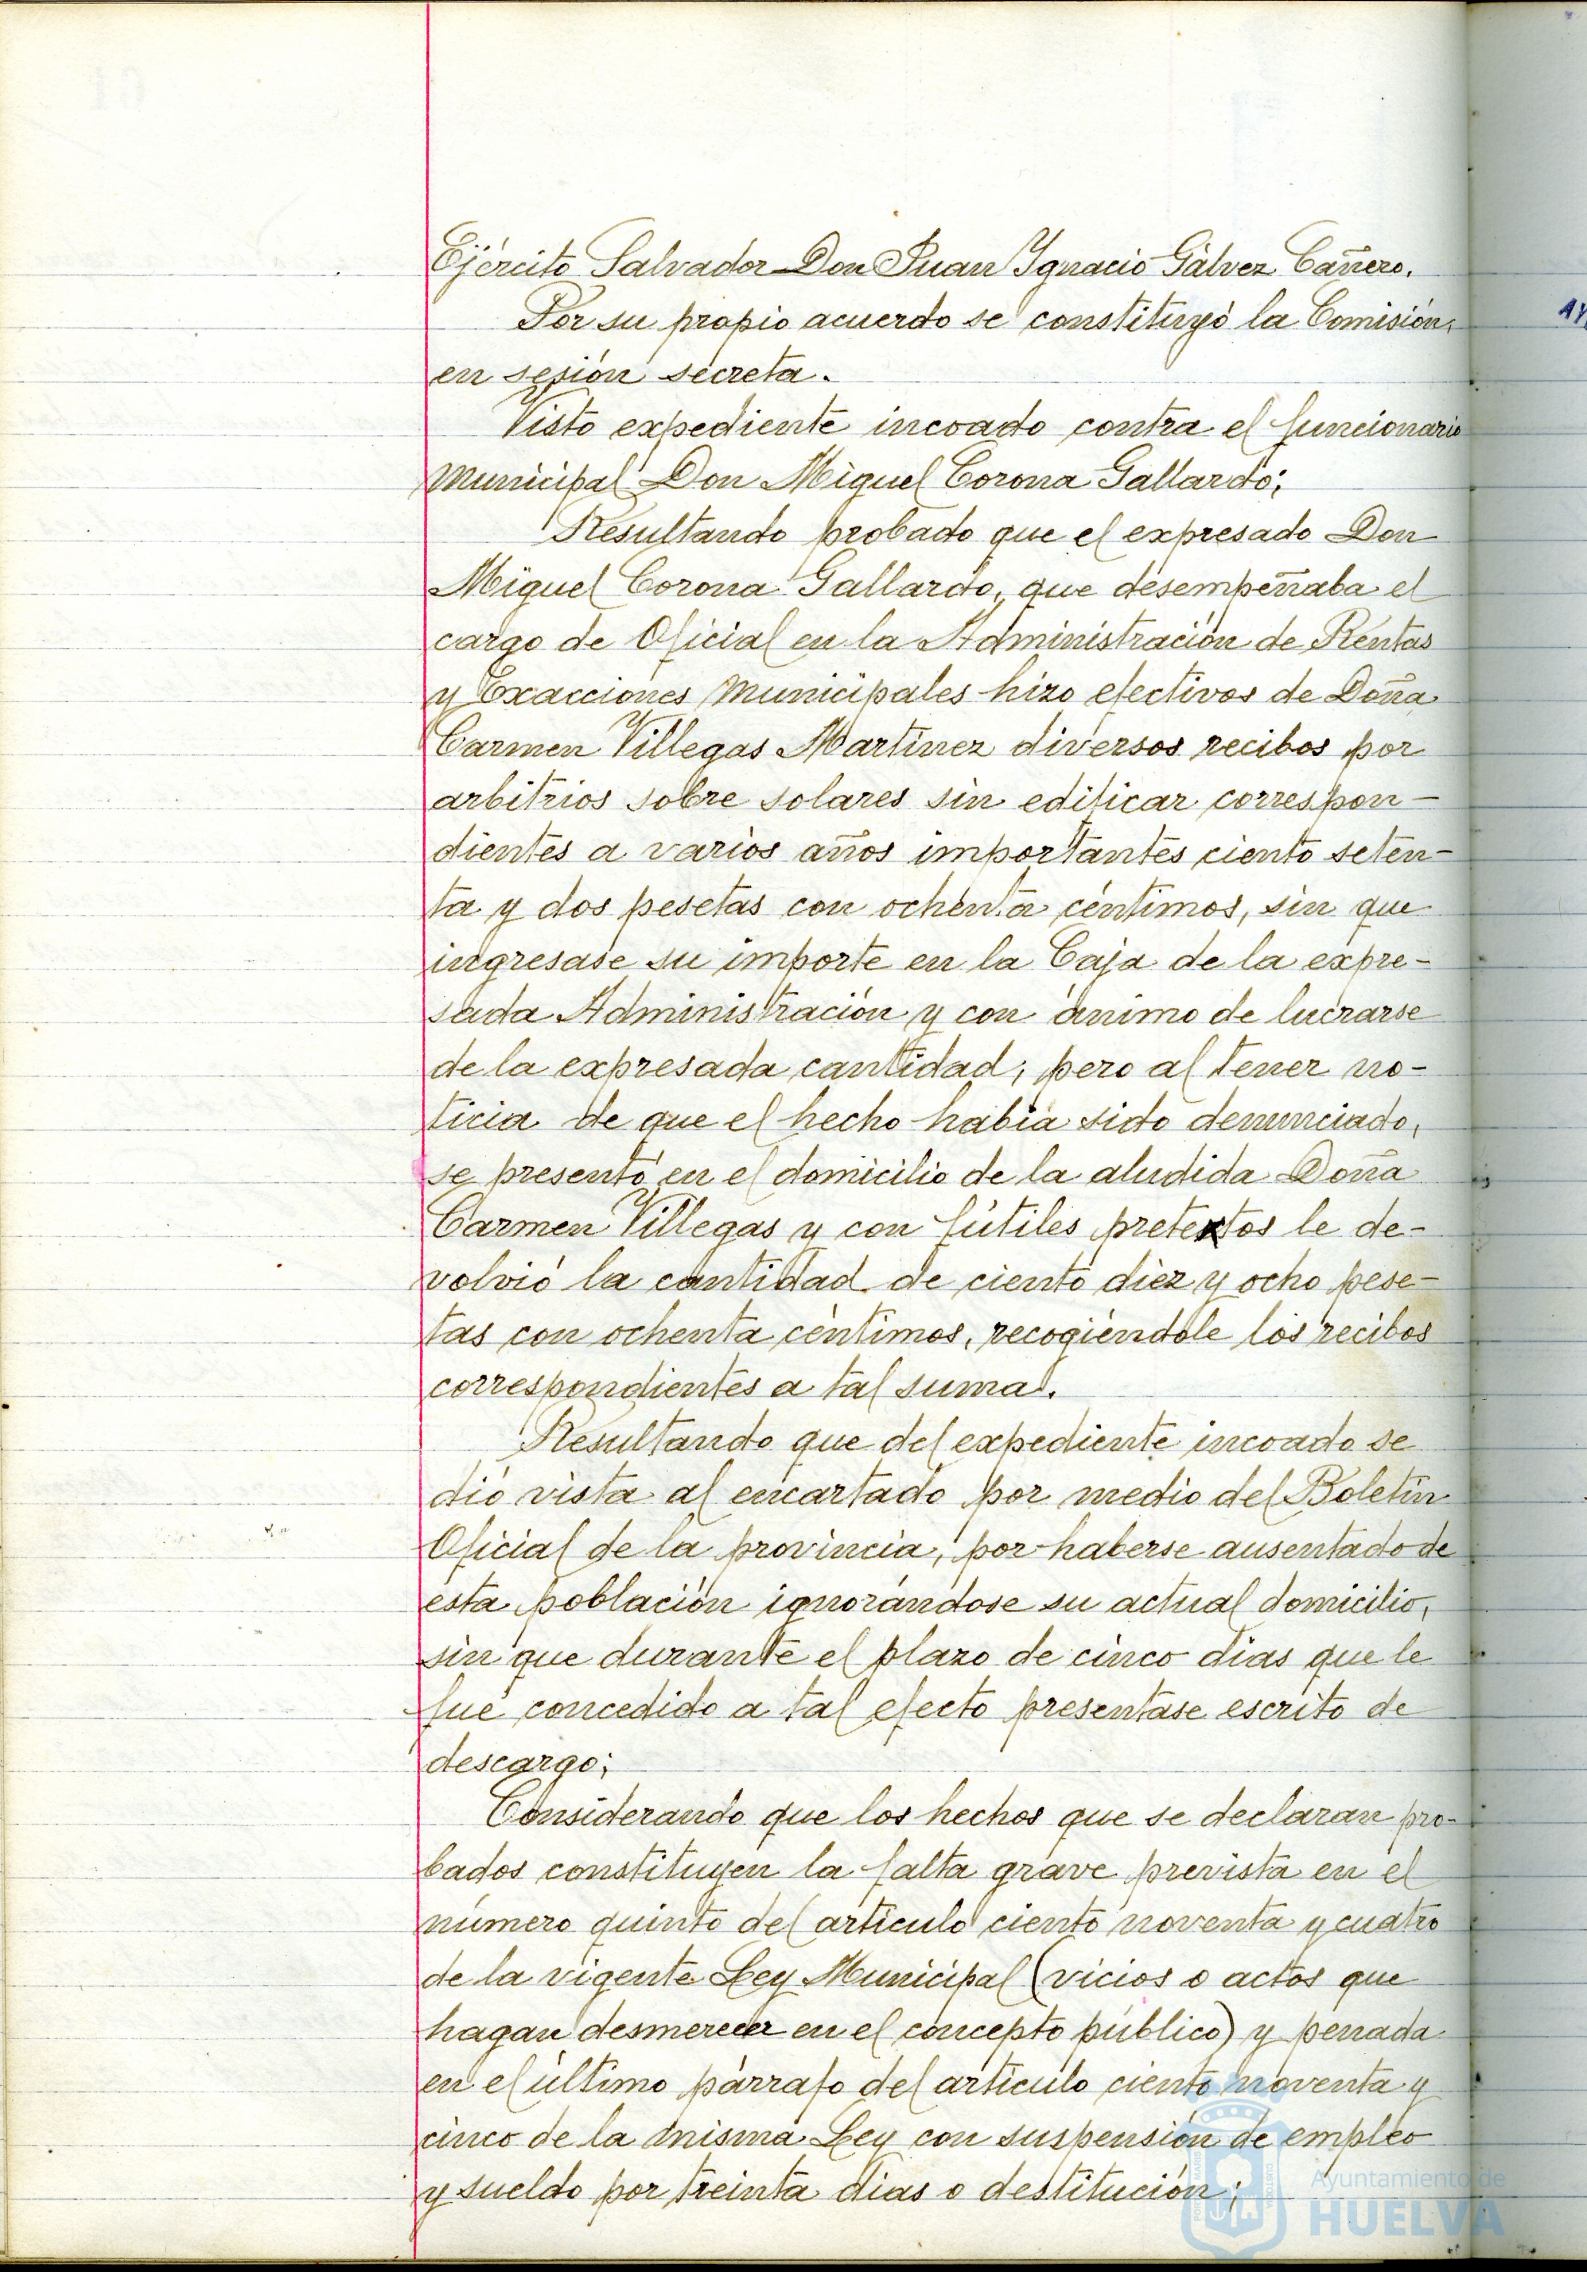 Ejército Salvador Don Juan Ygnacio Gálvez Cañero.
Por su propio acuerdo se constituyó la Comisión,
en sesión secreta.
Visto expediente incoado contra el funcionario
Municipal Don Miguel Corona Gallardo;
Resultando probado que el expresado Don
Miguel Corona Gallardo, que desempeñaba el
cargo de Oficial en la Administración de Rentas
y Exacciones Municipales hizo efectivos de Doña
Carmen Villegas Martínez diversos recibos por
arbitrios sobre solares sin edificar correspon-
dientes a varios años importantes ciento seten-
ta y dos pesetas con ochenta céntimos, sin que
ingresase su importe en la Caja de la expre-
sada Administración y con ánimo de lucrarse
de la expresada cantidad; pero al tener no-
ticia de que el hecho había sido denunciado,
se presentó en el domicilio de la aludida Doña
Carmen Villegas y con fútiles pretextos le de-
volvió la cantidad de ciento diez y ocho pese-
tas con ochenta céntimos, recogiéndole los recibos
correspondientes a tal suma.
Resultando que del expediente incoado se
dió vista al encartado por medio del Boletín
Oficial de la provincia, por haberse ausentado de
esta población ignorándose su actual domicilio,
sin que durante el plazo de cinco días que le
fué concedido a tal efecto presentase escrito de
descargo;
Considerando que los hechos que se declaran pro-
bados constituyen la falta grave prevista en el
número quinto del artículo ciento noventa y cuatro
de la vigente Ley Municipal (vicios o actos que
hagan desmerecer en el concepto público) y penada
en el último párrafo del artículo ciento noventa y
cinco de la misma Ley con suspensión de empleo
y sueldo por treinta días o destitución;
Ayuntamiento de
HUELVA